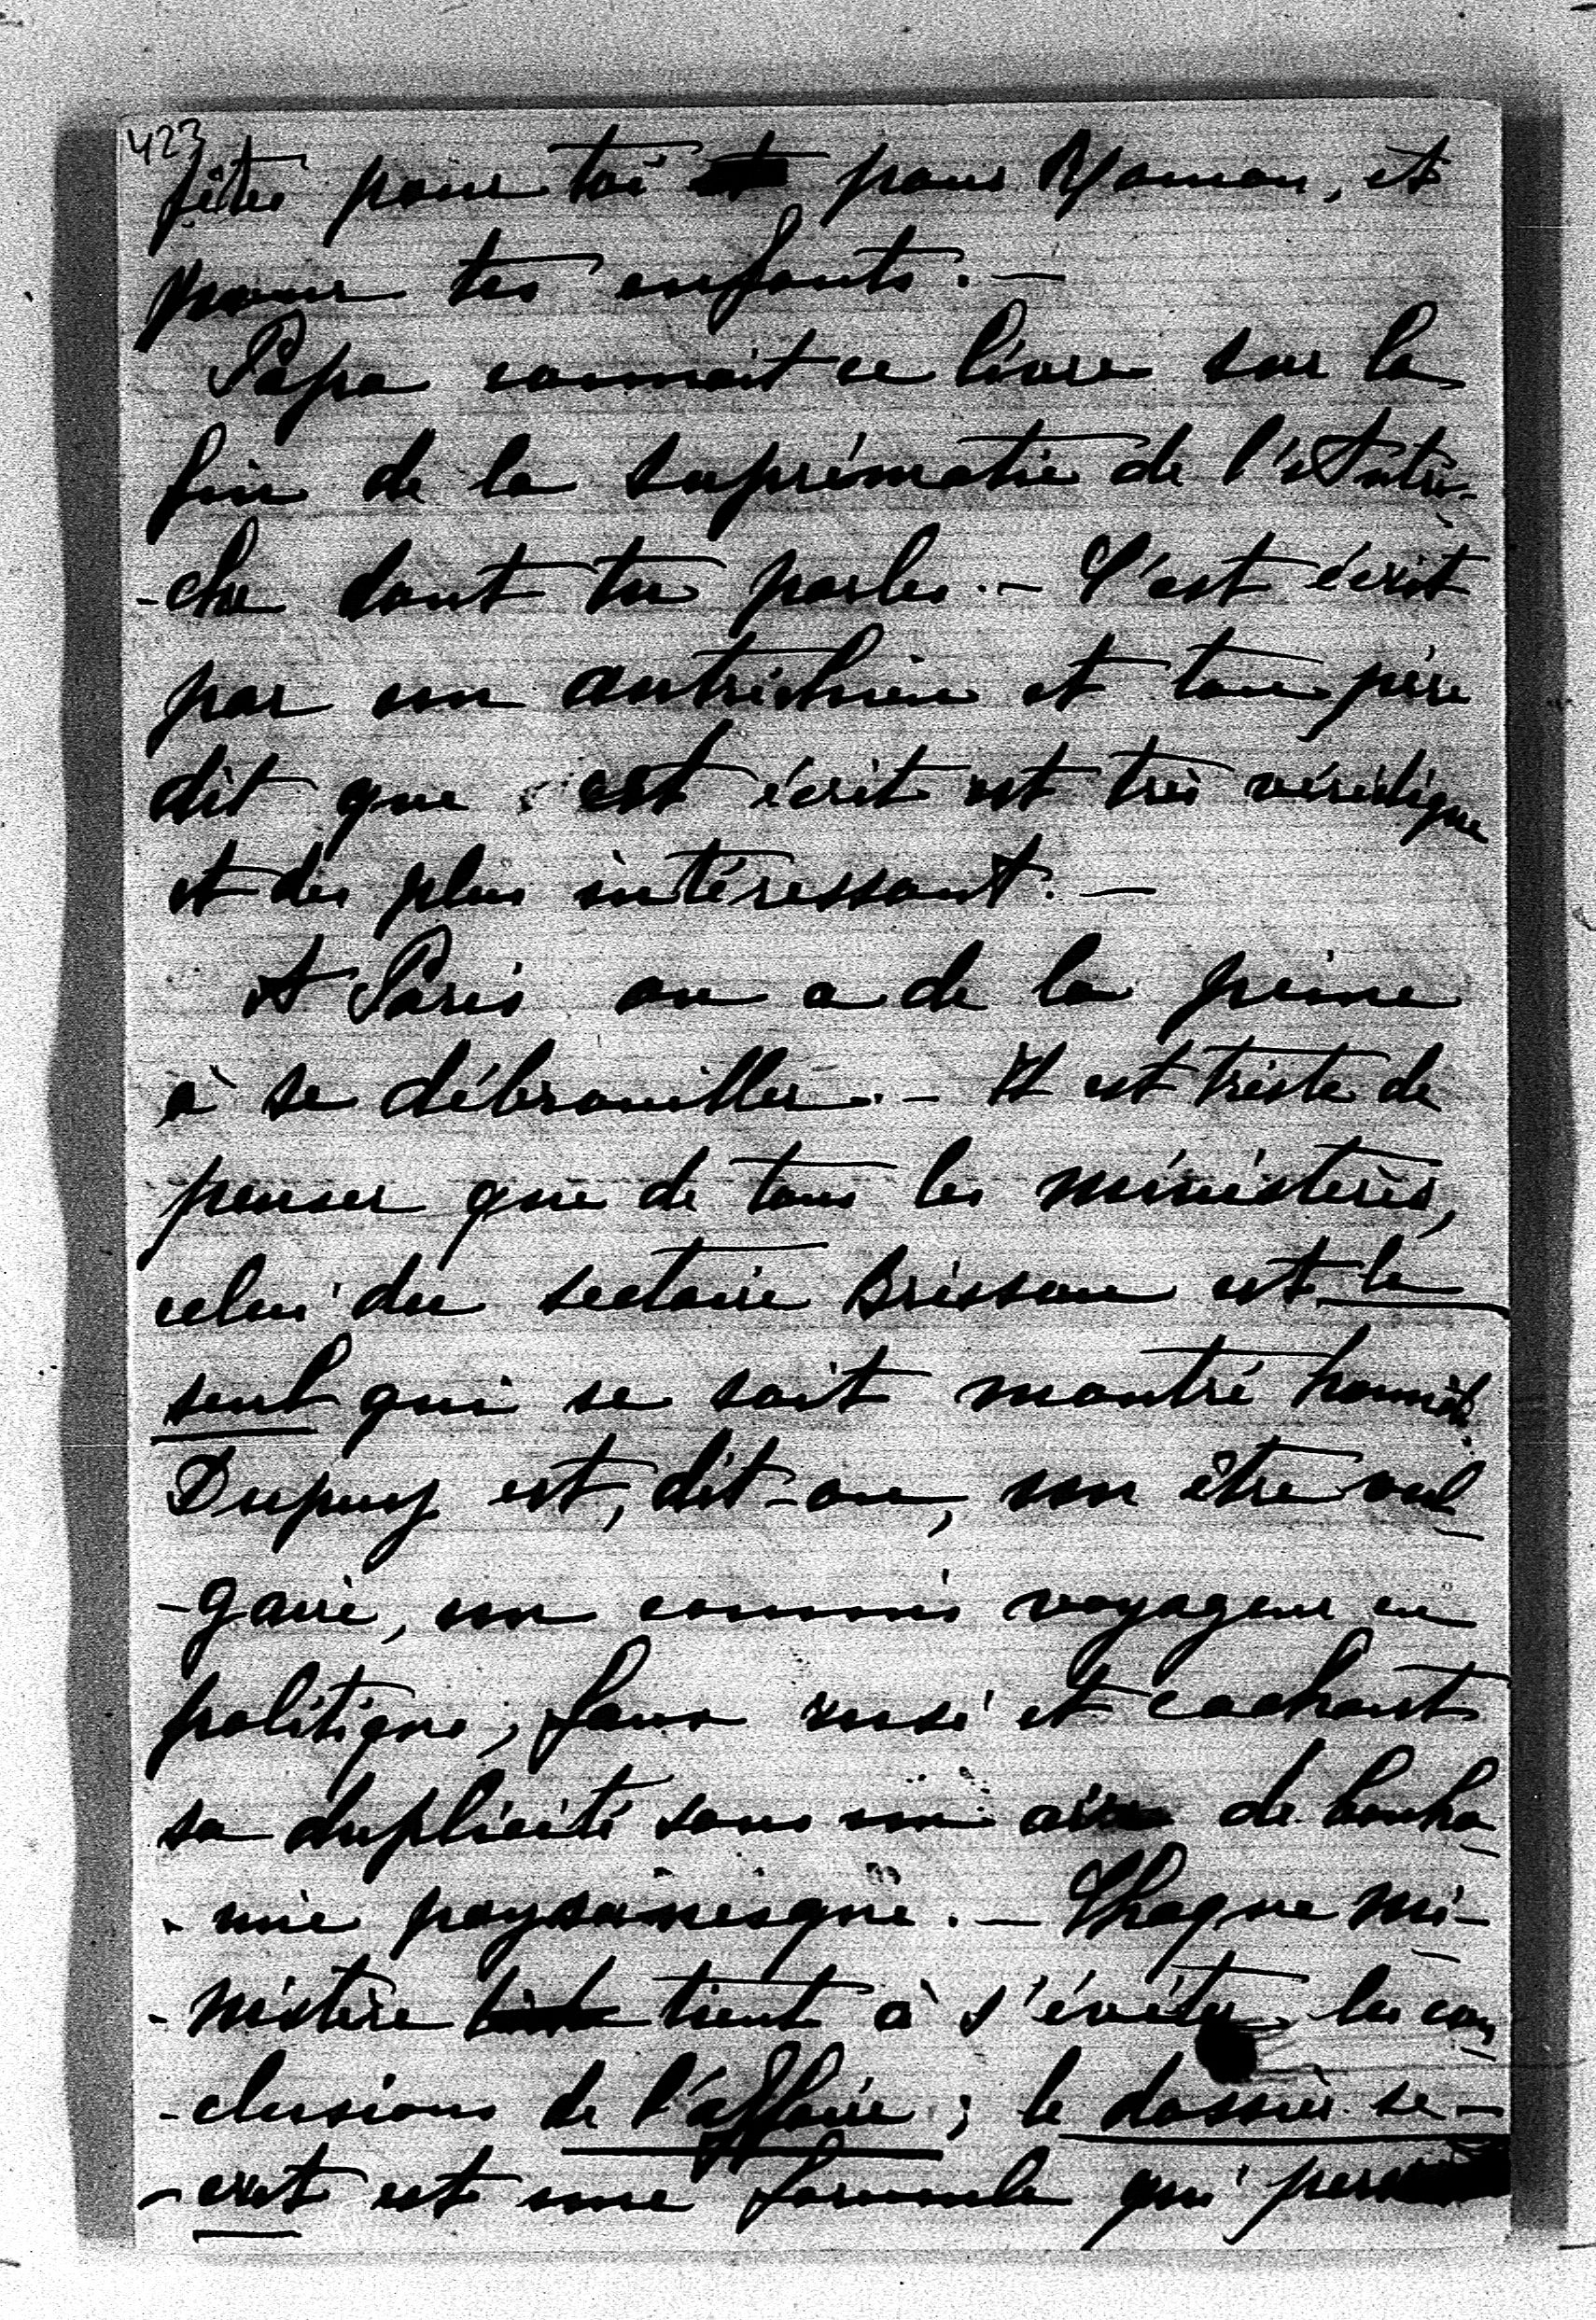 423
fêtes pour toi pour Maman, et
pour tes enfants. —
Papa connait ce livre sur la
fin de la suprématie de l'Autri-
-che dont tu parles. — C'est écrit
par un autrichien et ton père
dit que cet écrit est très véridique
et des plus intéressant. —
A Paris on a de la peine
à se débrouiller. — Il est triste de
penser que de tous les ministères,
celui du sectaire Brisson est le
seul qui se soit montré honnête.
Dupuy est, dit-on, un être vul-
-gaire, un commis voyageur en
politique, faux rusé et cachant
sa duplicité sous un air de bonho-
-mie paysannesque. — Chaque mi-
-nistère tient à s'éviter les con-
-clusions de l'affaire ; le dossier se-
-cret est une formule qui